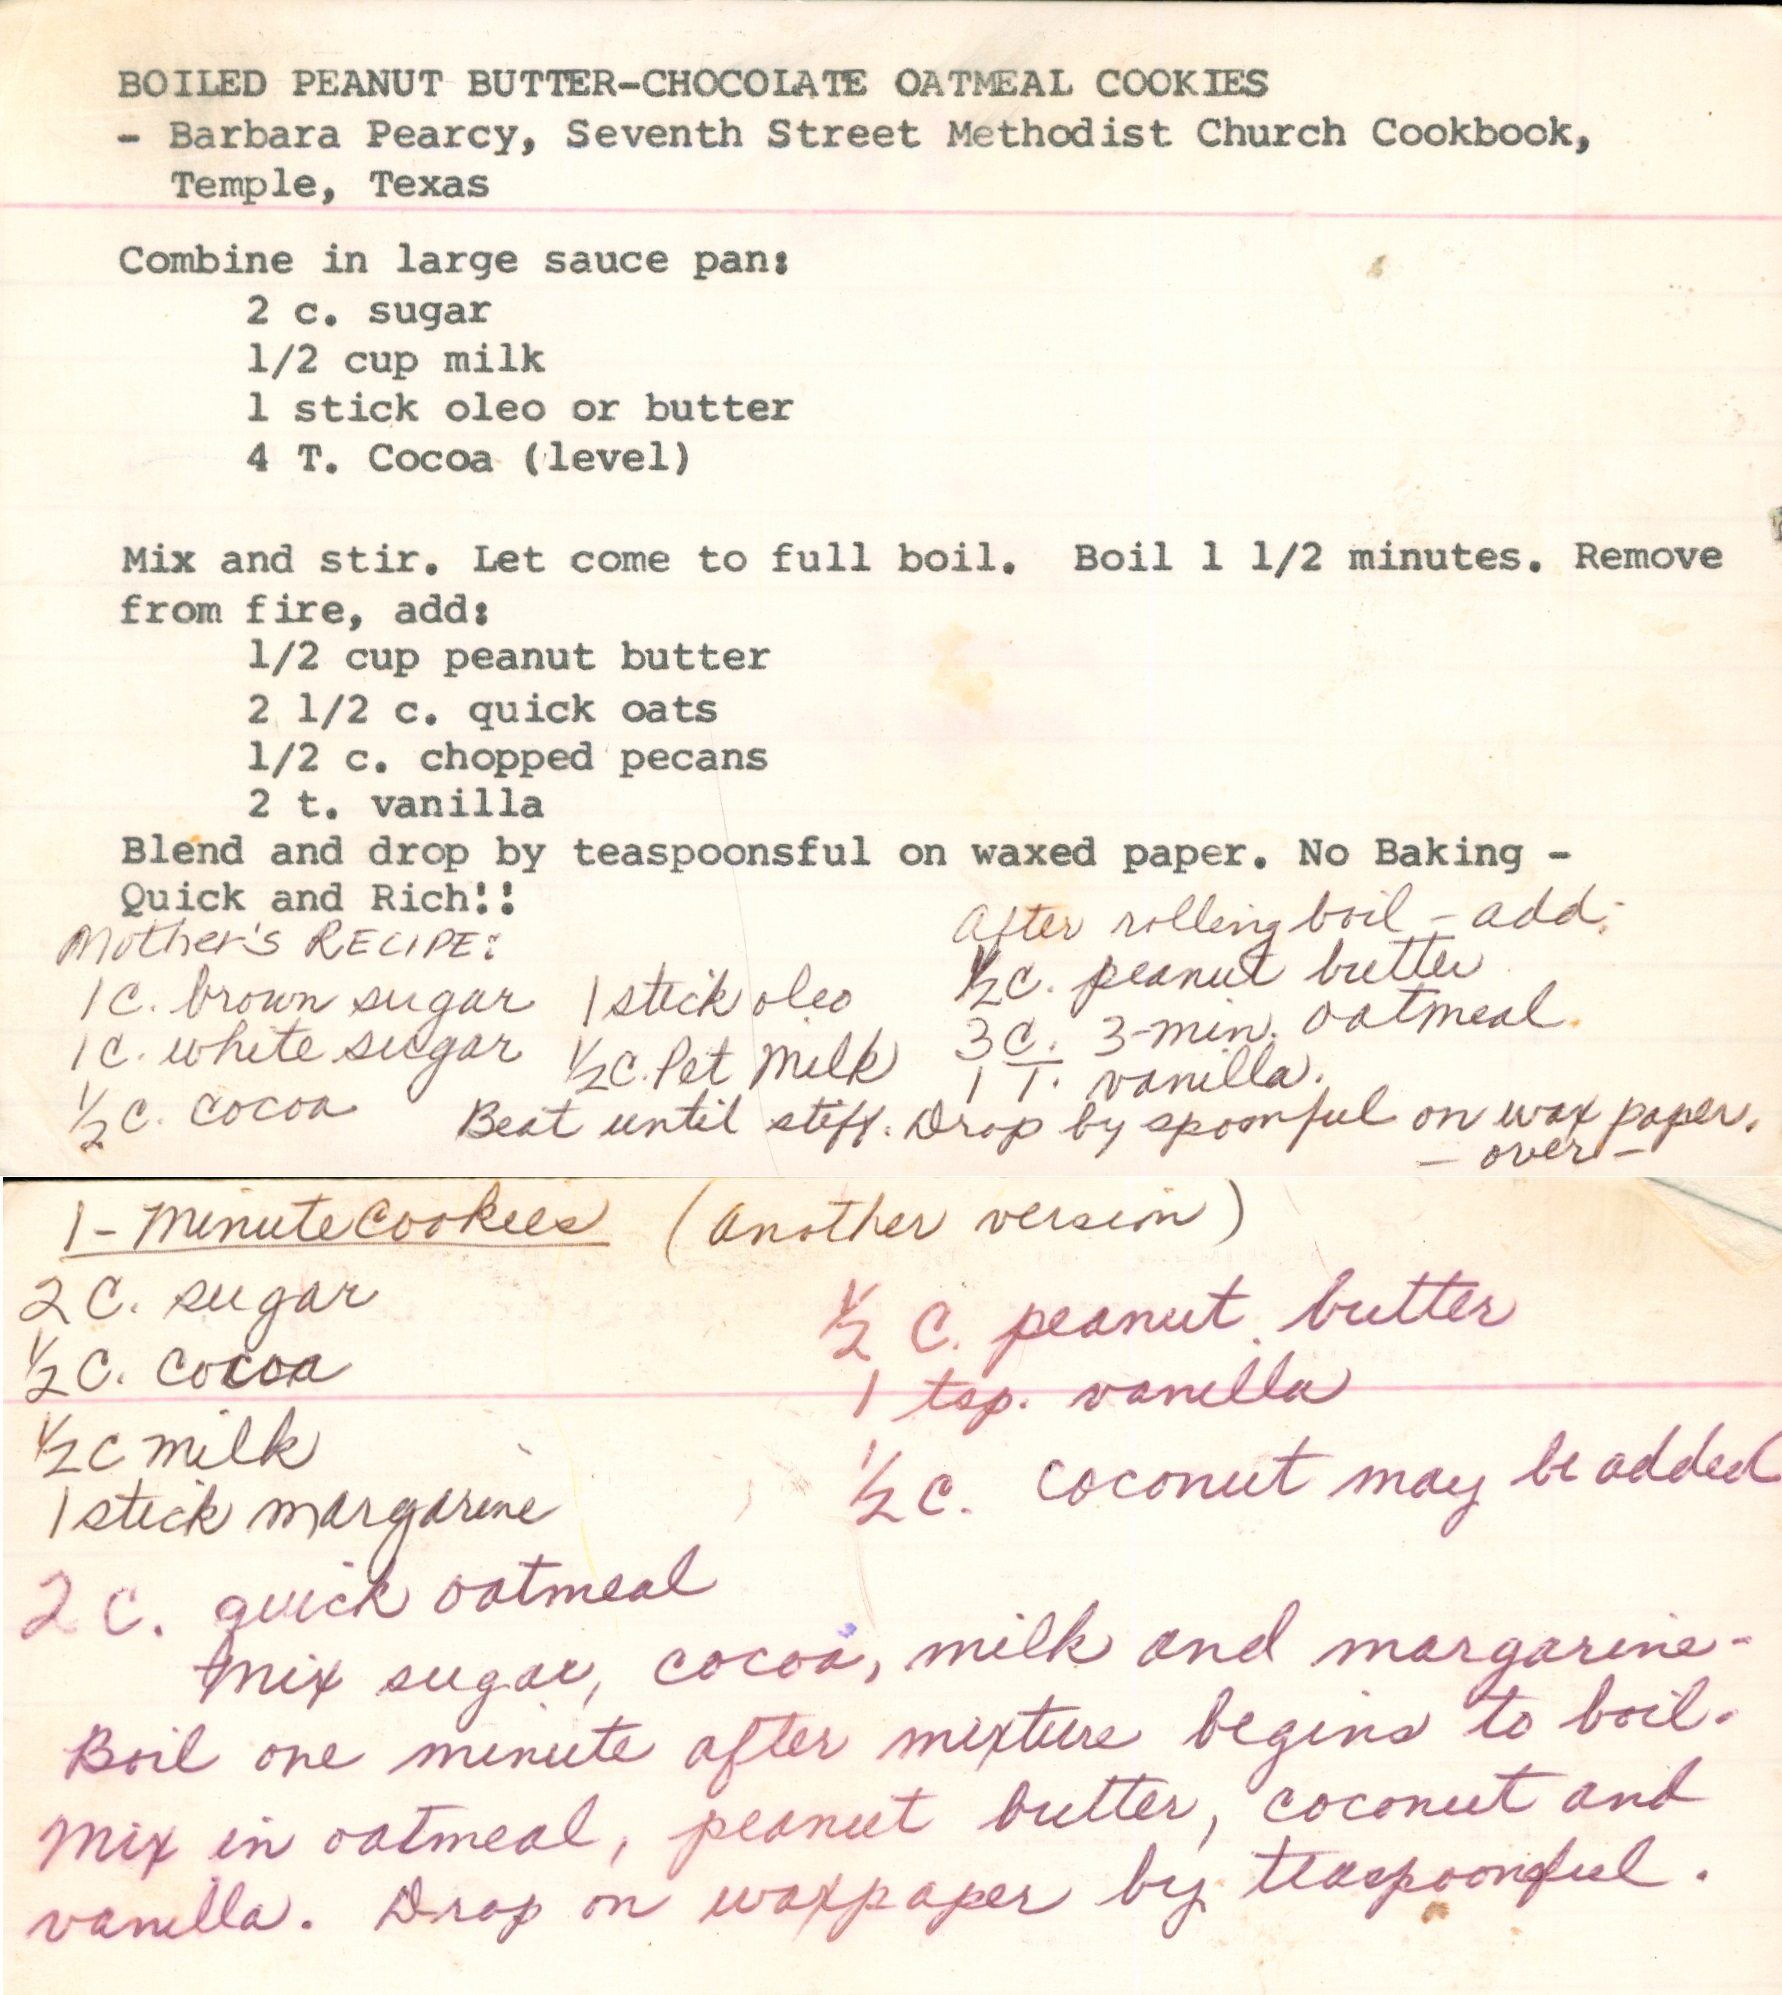 BOILED PEANUT BUTTER-CHOCOLATE OATMEAL COOKIES
- Barbara Pearcy, Seventh Street Methodist Church Cookbook,
Temple, Texas
Combine in large sauce pan:
2 c. sugar
1/2 cup milk
1 stick oleo or butter
4 T. Cocoa (level)
Mix and stir. Let come to full boil. Boil 1 1/2 minutes. Remove
from fire, add:
1/2 cup peanut butter
2 1/2 c. quick oats
1/2 c. chopped pecans
2 t. vanilla
Blend and drop by teaspoonsful on waxed paper. No Baking -
Quick and Rich!!
Mother's RECIPE:
1 C. brown sugar
1 C. white sugar
1/2 C. cocoa
1 stick oleo
1/2 C. Pet Milk
After rolling boil - add:
1/2 C. peanut butter
3 C. 3-min. oatmeal
1 T. vanilla.
Beat until stiff. Drop by spoonful on wax paper.
- over -
1-Minute Cookies (another version)
2 C. sugar
1/2 C. cocoa
1/2 C milk
1 stick margarine
2 C. quick oatmeal
1/2 C. peanut butter
1 tsp. vanilla
1/2 C. coconut may be added
Mix sugar, cocoa, milk and margarine-
Boil one minute after mixture begins to boil.
Mix in oatmeal, peanut butter, coconut and
vanilla. Drop on waxpaper by teaspoonful.